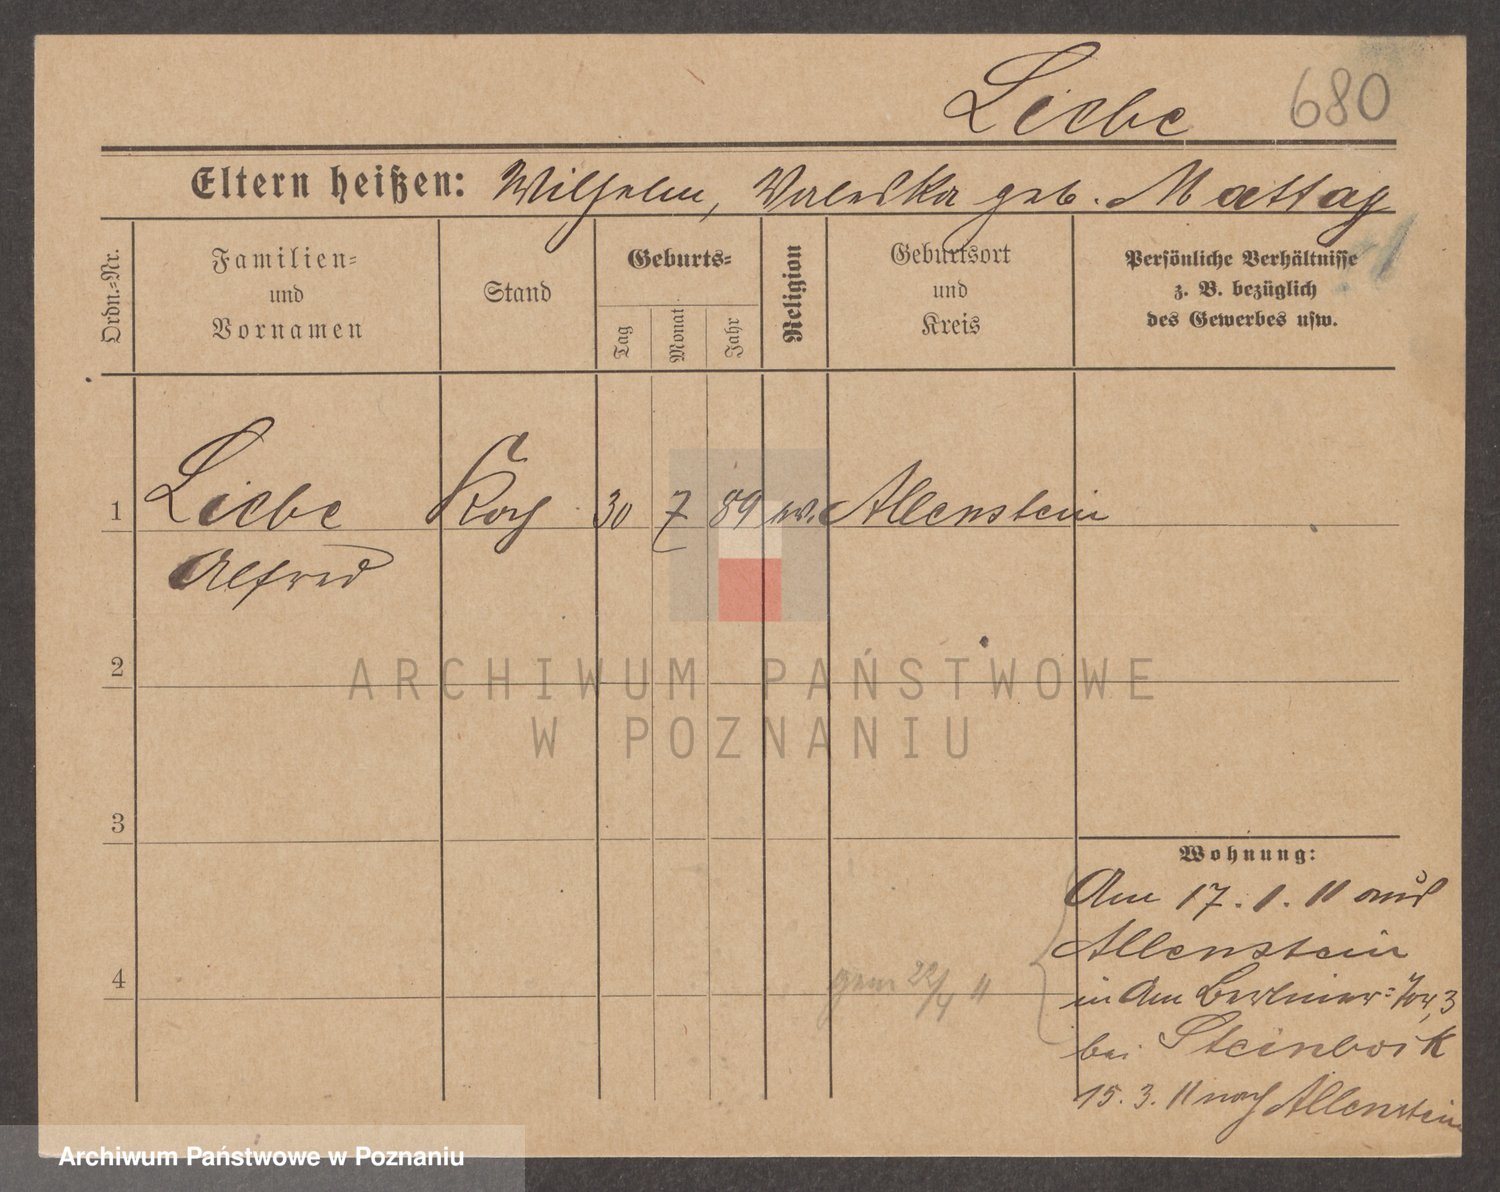 Liebe 680
Eltern heißen: Wilhelm, Valeska geb. Mattay
Ordn.-Nr.
Familien-
und
Vornamen
Stand
Geburts-
Tag
Monat
Jahr
Religion
Geburtsort
und
Kreis
Persönliche Verhältnisse
z. B. bezüglich
des Gewerbes usw.
1 Liebe Koch 30 7 89 ev. Allenstein
Alfred
2
ARCHIWUM PAŃSTWOWE
W POZNANIU
3
Wohnung:
Am 17. 1. 11 aus
Allenstein
4
gem 22/4 11
in Am Berliner-Tor, 3
bei Steinbock
15. 3. 11 nach Allenstein
Archiwum Państwowe w Poznaniu